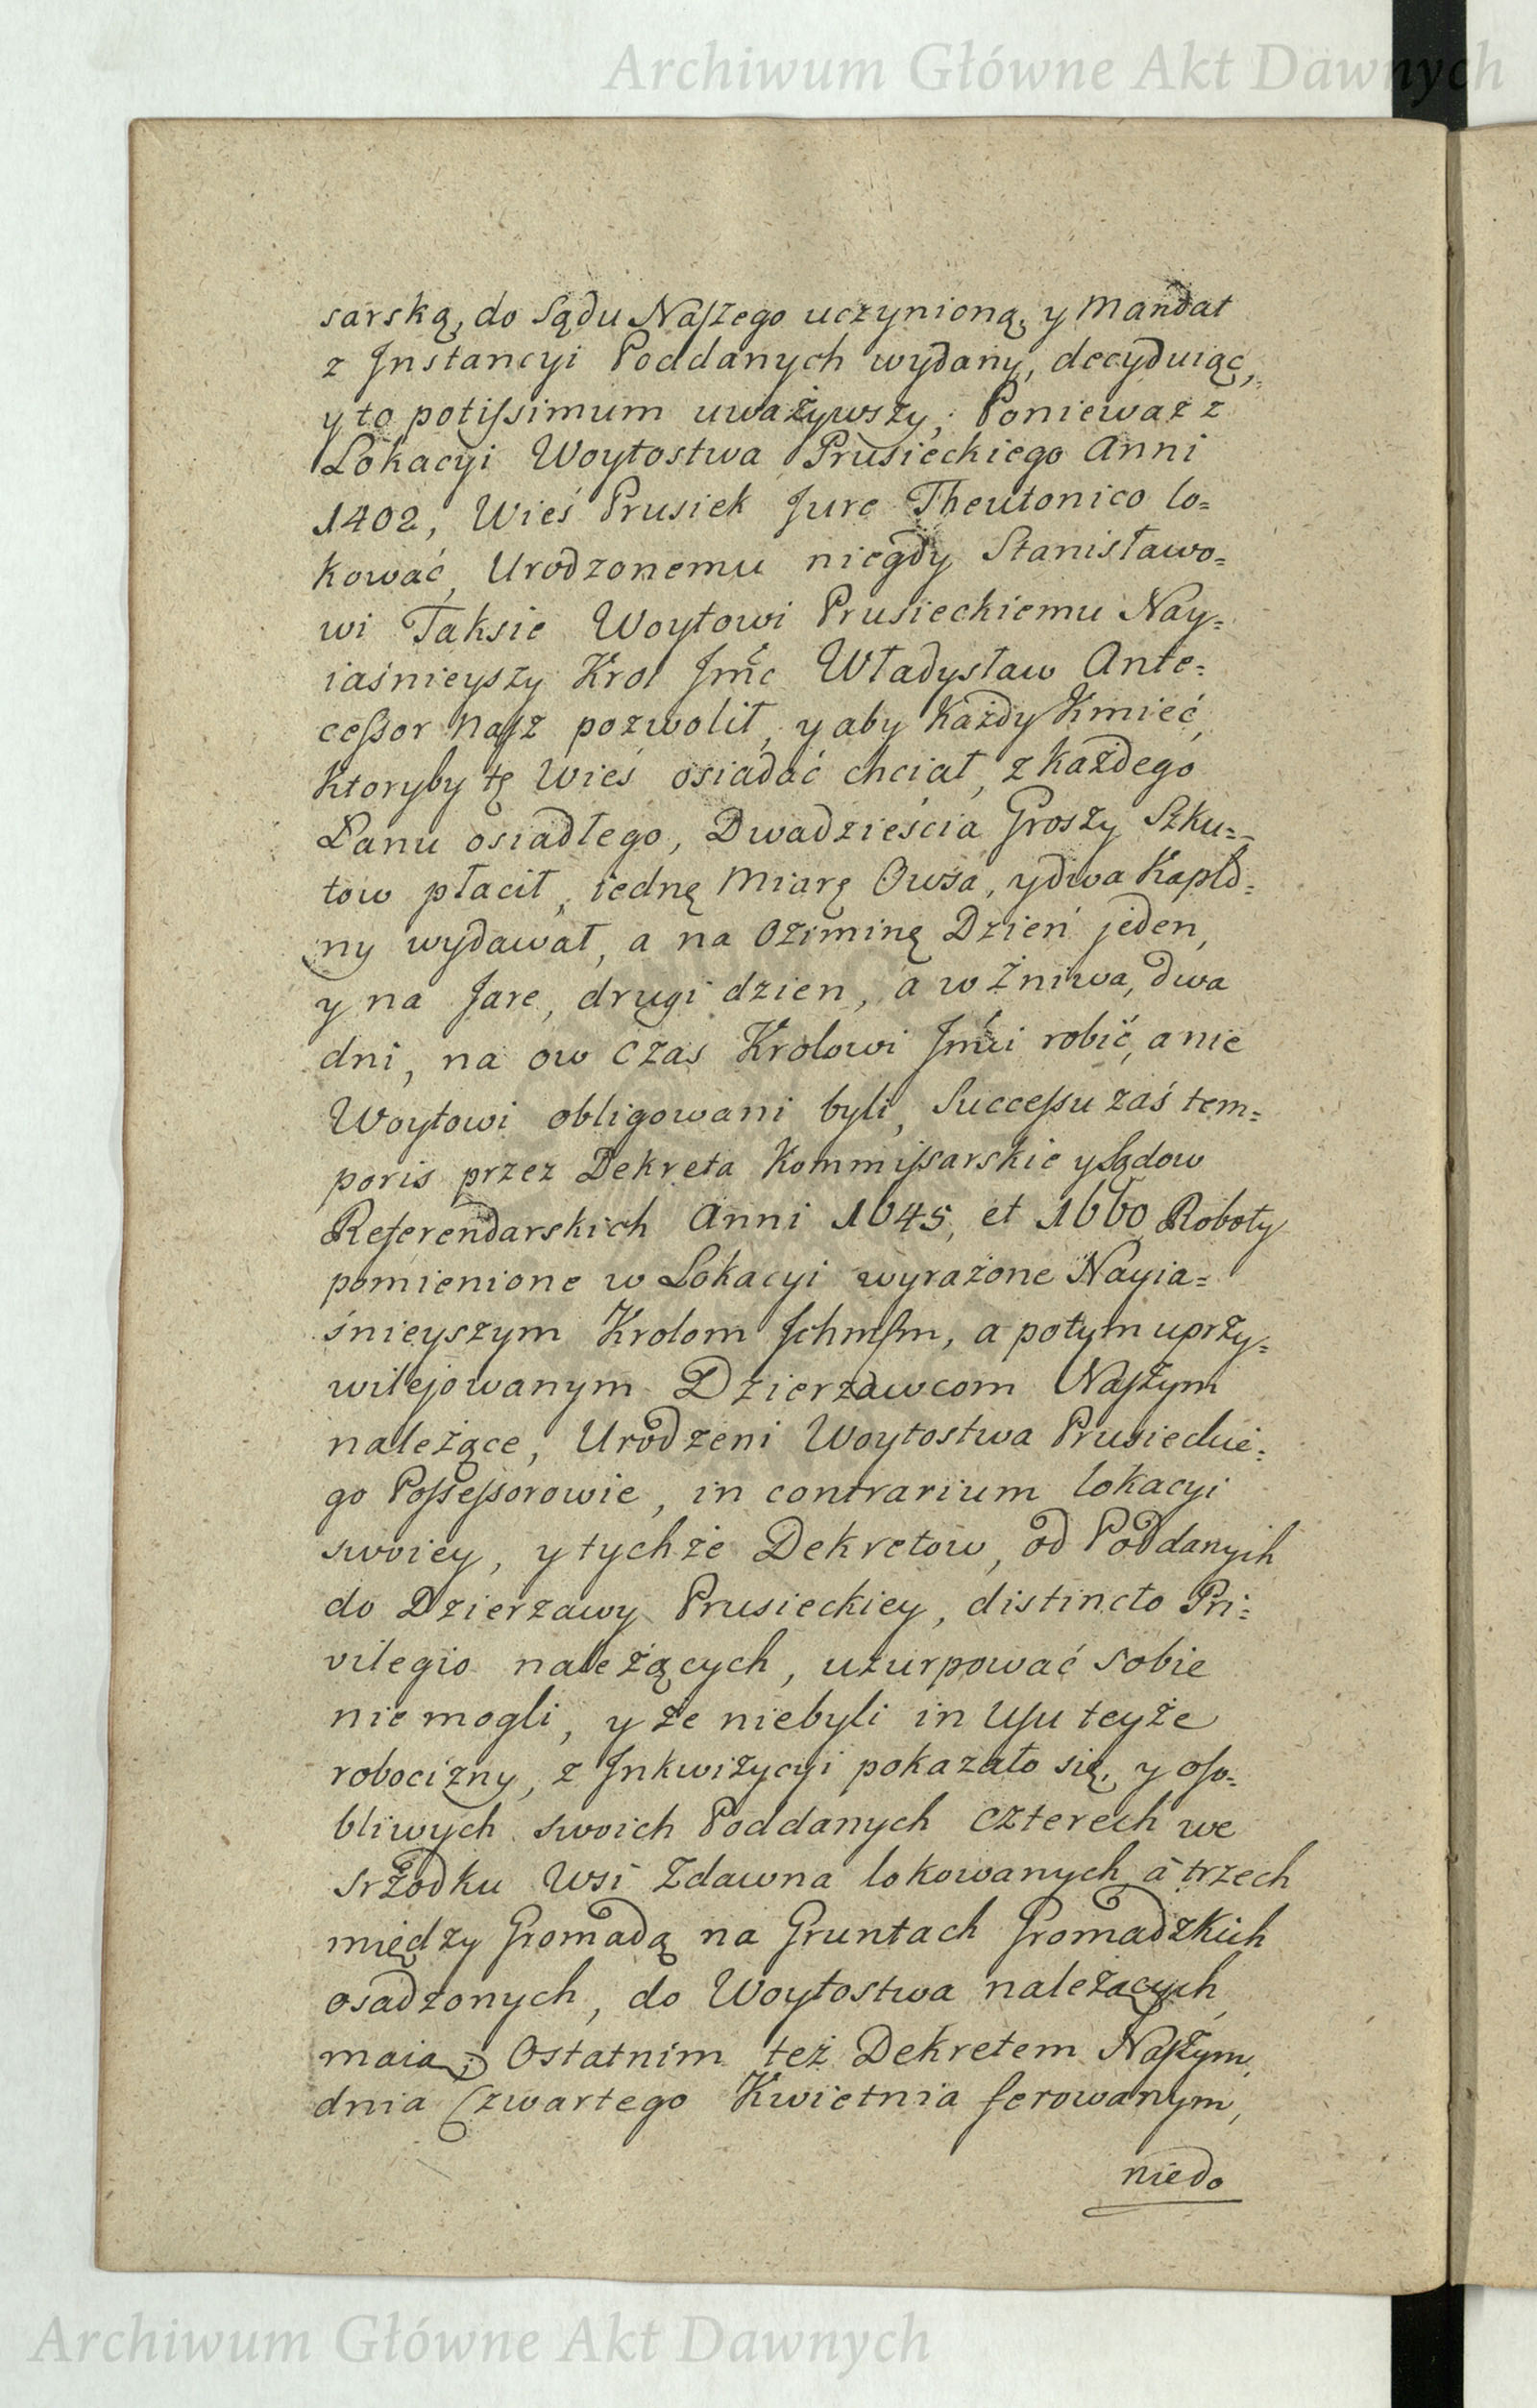 Archiwum Główne Akt Dawnych
sarską, do Sądu Naſzego uczynioną, y Mandat
z Jnstancyi Poddanych wydany, decyduiąc,
y to potiſsimum uważywszy; Ponieważ z
Lokacyi Woytostwa Prusieckiego Anni
1402, Wieś Prusiek Jure Theutonico lo=
kować, Urodzonemu niegdy Stanisławo=
wi Taksie Woytowi Prusieckiemu Nay=
iaśnieyszy Krol Jmć Władysław Ante=
ceſsor Naſz pozwolił, y aby Każdy Kmieć,
Ktoryby tę Wieś osiadać chciał, z każdego
Łanu osiadłego, Dwadzieścia Groszy Szku=
tow płacił, iednę Miarę Owsa, y dwa Kapło=
ny wydawał, a na Oziminę Dzień jeden,
y na Jare, drugi dzien, a w Żniwa, dwa
dni, na ow czas Krolowi Jmći robić, a nie
Woytowi obligowani byli, Succeſsu zaś tem=
poris przez Dekreta Kommiſsarskie y Sądow
Referendarskich Anni 1645, et 1660 Roboty
pomienione w Lokacyi wyrażone Nayia=
śnieyszym Krolom Jchmſm, a potym uprzy=
wilejowanym Dzierzawcom Naſzym
należące, Urodzeni Woytostwa Prusieckie=
go Poſseſsorowie, in contrarium lokacyi
swoiey, y tychże Dekretow, od Poddanych
do Dzierzawy Prusieckiey, distincto Pri=
vilegio należących, uzurpować sobie
nie mogli, y że niebyli in Uſu teyże
robocizny, z Jnkwizycyi pokazało się, y oſo=
bliwych swoich Poddanych czterech we
srzodku Wsi Zdawna lokowanych, a trzech
między Gromadą na Gruntach Gromadzkich
osadzonych, do Woytostwa należących,
maią; Ostatnim też Dekretem Naſzym,
dnia Czwartego Kwietnia ferowanym,
niedo
Archiwum Główne Akt Dawnych